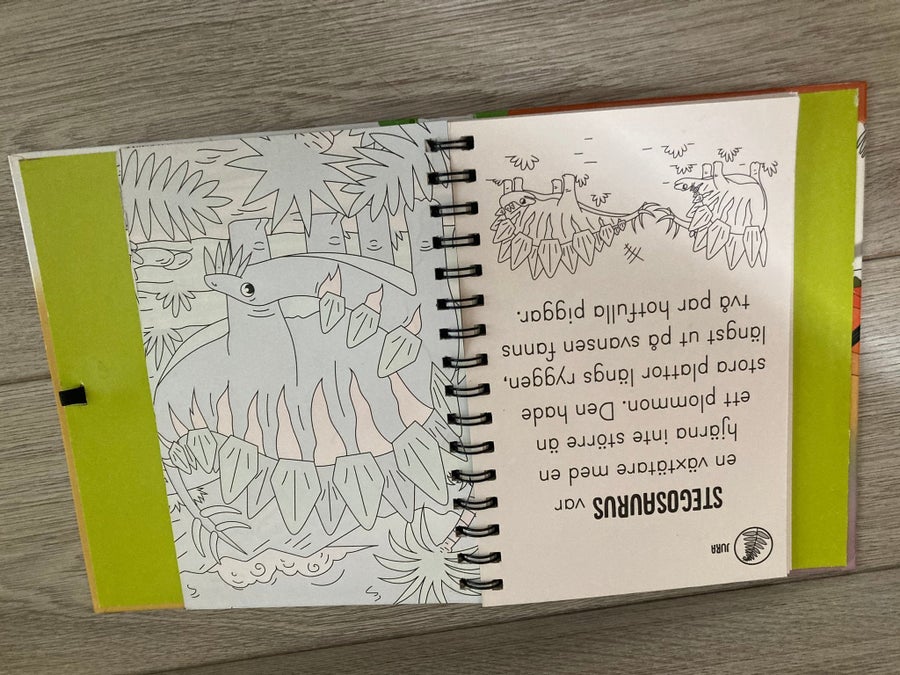 JURA
STEGOSAURUS var
en växtätare med en
hjärna inte större än
ett plommon. Den hade
stora plattor längs ryggen,
längst ut på svansen fanns
två par hotfulla piggar.